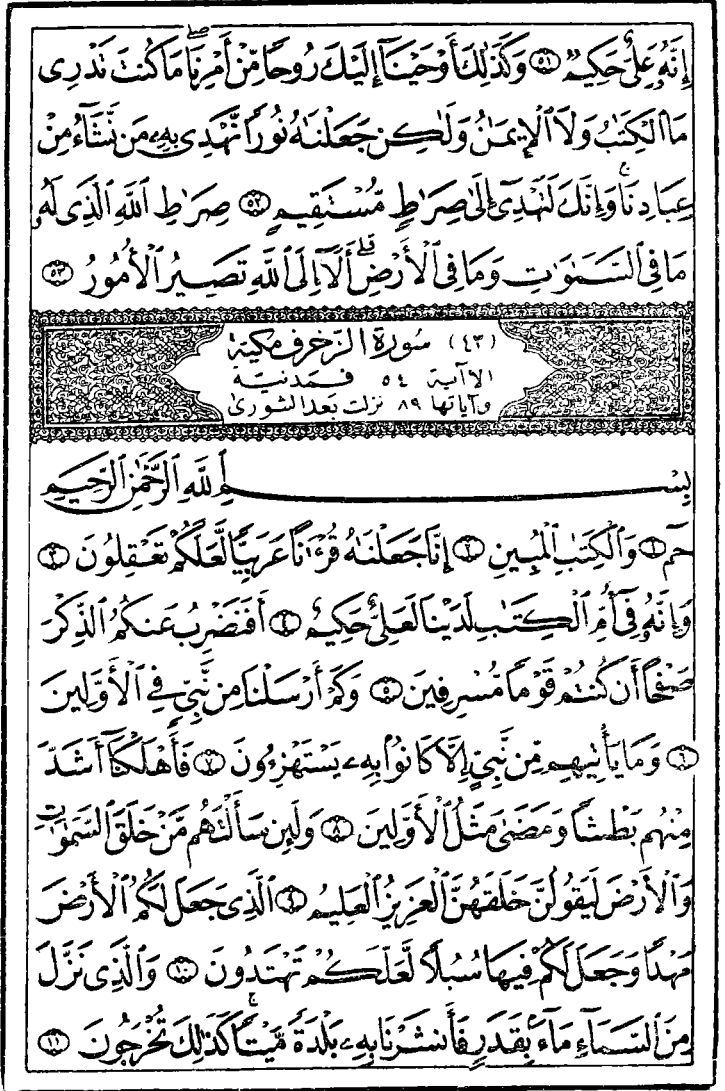 إِنَّهُۥ عَلِيٌّ حَكِيمٌ ۝٥١ وَكَذَٰلِكَ أَوْحَيْنَآ إِلَيْكَ رُوحًا مِّنْ أَمْرِنَا ۚ مَا كُنتَ تَدْرِى
مَا ٱلْكِتَـٰبُ وَلَا ٱلْإِيمَـٰنُ وَلَـٰكِن جَعَلْنَـٰهُ نُورًا نَّهْدِى بِهِۦ مَن نَّشَآءُ مِنْ
عِبَادِنَا ۚ وَإِنَّكَ لَتَهْدِىٓ إِلَىٰ صِرَٰطٍ مُّسْتَقِيمٍ ۝٥٢ صِرَٰطِ ٱللَّهِ ٱلَّذِى لَهُۥ
مَا فِى ٱلسَّمَـٰوَٰتِ وَمَا فِى ٱلْأَرْضِ ۗ أَلَآ إِلَى ٱللَّهِ تَصِيرُ ٱلْأُمُورُ ۝٥٣
(٤٣) سورة الزخرف مكية
الا آية ٥٤ فمدنية
وآياتها ٨٩ نزلت بعد الشورى
بِسْمِ ٱللَّهِ ٱلرَّحْمَـٰنِ ٱلرَّحِيمِ
حمٓ ۝١ وَٱلْكِتَـٰبِ ٱلْمُبِينِ ۝٢ إِنَّا جَعَلْنَـٰهُ قُرْءَٰنًا عَرَبِيًّا لَّعَلَّكُمْ تَعْقِلُونَ ۝٣
وَإِنَّهُۥ فِىٓ أُمِّ ٱلْكِتَـٰبِ لَدَيْنَا لَعَلِيٌّ حَكِيمٌ ۝٤ أَفَنَضْرِبُ عَنكُمُ ٱلذِّكْرَ
صَفْحًا أَن كُنتُمْ قَوْمًا مُّسْرِفِينَ ۝٥ وَكَمْ أَرْسَلْنَا مِن نَّبِىٍّ فِى ٱلْأَوَّلِينَ
۝٦ وَمَا يَأْتِيهِم مِّن نَّبِىٍّ إِلَّا كَانُوا۟ بِهِۦ يَسْتَهْزِءُونَ ۝٧ فَأَهْلَكْنَآ أَشَدَّ
مِنْهُم بَطْشًا وَمَضَىٰ مَثَلُ ٱلْأَوَّلِينَ ۝٨ وَلَئِن سَأَلْتَهُم مَّنْ خَلَقَ ٱلسَّمَـٰوَٰتِ
وَٱلْأَرْضَ لَيَقُولُنَّ خَلَقَهُنَّ ٱلْعَزِيزُ ٱلْعَلِيمُ ۝٩ ٱلَّذِى جَعَلَ لَكُمُ ٱلْأَرْضَ
مَهْدًا وَجَعَلَ لَكُمْ فِيهَا سُبُلًا لَّعَلَّكُمْ تَهْتَدُونَ ۝١٠ وَٱلَّذِى نَزَّلَ
مِنَ ٱلسَّمَآءِ مَآءًۢ بِقَدَرٍ فَأَنشَرْنَا بِهِۦ بَلْدَةً مَّيْتًا ۚ كَذَٰلِكَ تُخْرَجُونَ ۝١١